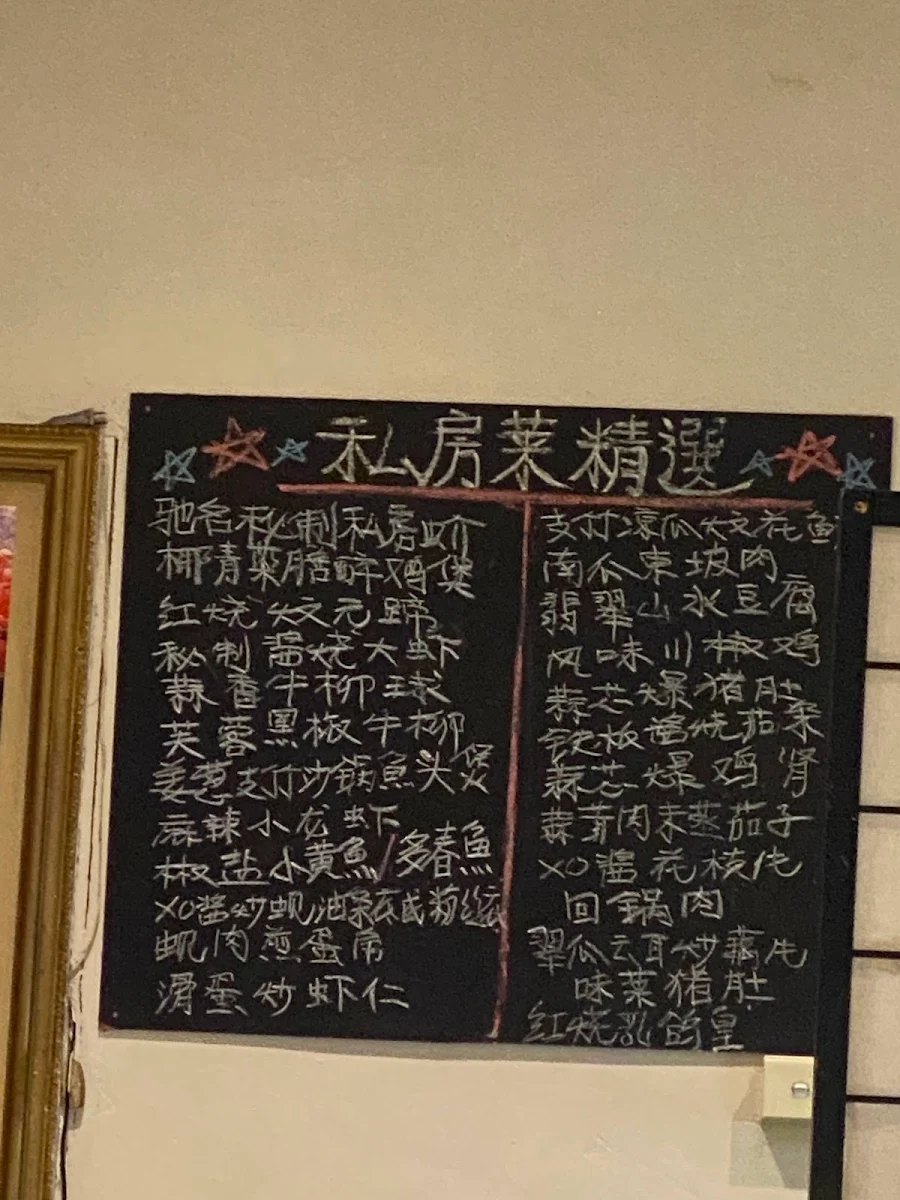 私房菜精選
驰名秘制私房蚧
椰青菜胆醉鸡煲
红烧炆元蹄
秘制酱烧大虾
蒜香牛柳球
芙蓉黑椒牛柳
姜葱支竹沙锅魚头煲
麻辣小龙虾
椒盐小黄魚/多春魚
XO酱炒蚬油条或粉丝
蚬肉煎蛋角
滑蛋炒虾仁
支竹凉瓜炆花鱼
南瓜東坡肉
翡翠山水豆腐
风味川椒鸡
蒜芯爆猪肚
铁板酱烧茄
蒜芯爆鸡肾
蒜茸肉末蒸茄子
XO酱花枝片
回鍋肉
翠瓜云耳炒藕片
味菜猪肚
红烧乳鸽皇